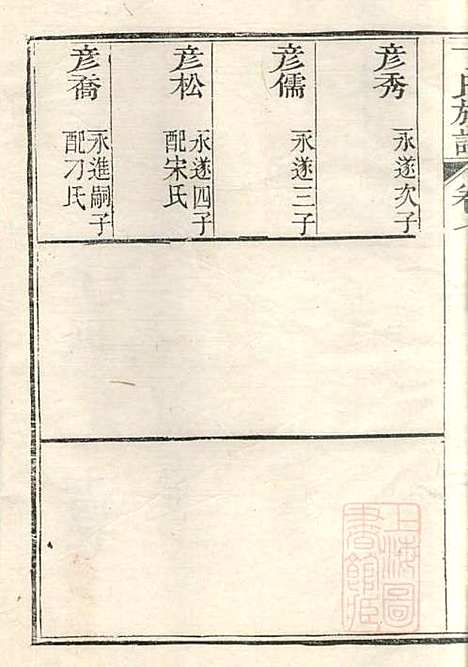 氏族譜
彥秀
永遂次子
彥儒
永遂三子
彥松
永遂四子
配宋氏
彥喬
永進嗣子
配刁氏
上海圖
書館臧